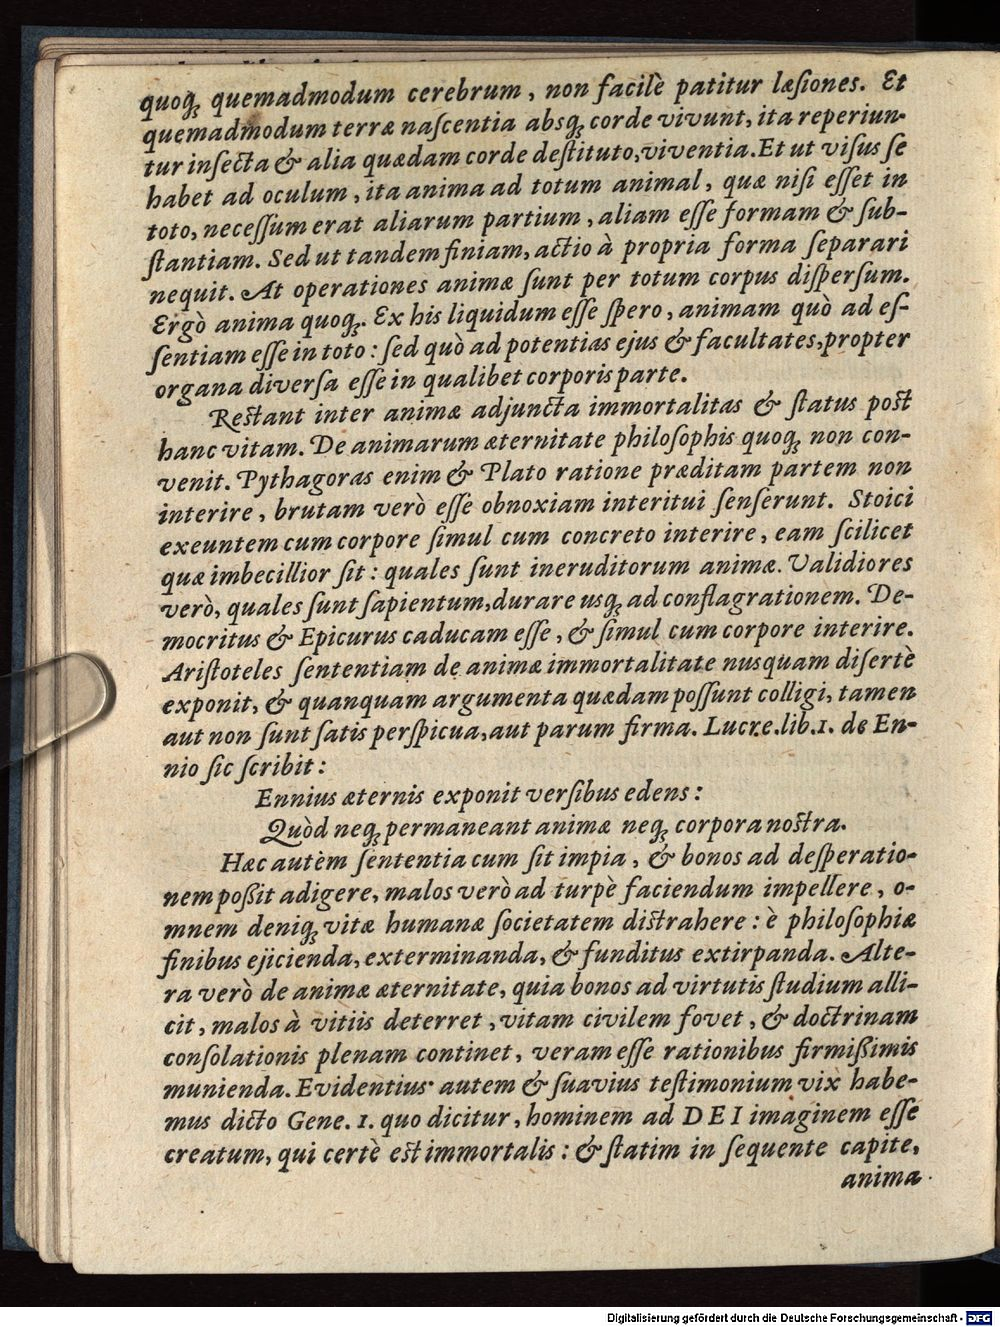 quoq́ꝫ quemadmodum cerebrum, non facilè patitur læſiones. Et
quemadmodum terræ naſcentia absq́ꝫ corde vivunt, ita reperiun-
tur inſecta & alia quædam corde deſtituto, viventia. Et ut viſus ſe
habet ad oculum, ita anima ad totum animal, quæ niſi eſſet in
toto, neceſſum erat aliarum partium, aliam eſſe formam & ſub-
ſtantiam. Sed ut tandem finiam, actio à propria forma ſeparari
nequit. At operationes animæ ſunt per totum corpus diſperſum.
Ergò anima quoq́ꝫ. Ex his liquidum eſſe ſpero, animam quò ad eſ-
ſentiam eſſe in toto: ſed quò ad potentias ejus & facultates, propter
organa diverſa eſſe in qualibet corporis parte.
Reſtant inter animæ adjuncta immortalitas & ſtatus poſt
hanc vitam. De animarum æternitate philoſophis quoq́ꝫ non con-
venit. Pythagoras enim & Plato ratione præditam partem non
interire, brutam verò eſſe obnoxiam interitui ſenſerunt. Stoici
exeuntem cum corpore ſimul cum concreto interire, eam ſcilicet
quæ imbecillior ſit: quales ſunt ineruditorum animæ. Validiores
verò, quales ſunt ſapientum, durare usq́ꝫ ad conflagrationem. De-
mocritus & Epicurus caducam eſſe, & ſimul cum corpore interire.
Ariſtoteles ſententiam de animæ immortalitate nusquam diſertè
exponit, & quanquam argumenta quædam poſſunt colligi, tamen
aut non ſunt ſatis perſpicua, aut parum firma. Lucre. lib. 1. de En-
nio ſic ſcribit:
Ennius æternis exponit verſibus edens:
Quòd neq́ꝫ permaneant animæ neq́ꝫ corpora noſtra.
Hæc autèm ſententia cum ſit impia, & bonos ad deſperatio-
nem poßit adigere, malos verò ad turpè faciendum impellere, o-
mnem deniq́ꝫ vitæ humanæ ſocietatem diſtrahere: è philoſophiæ
finibus ejicienda, exterminanda, & funditus extirpanda. Alte-
ra verò de animæ æternitate, quia bonos ad virtutis ſtudium alli-
cit, malos à vitiis deterret, vitam civilem fovet, & doctrinam
conſolationis plenam continet, veram eſſe rationibus firmißimis
munienda. Evidentius autem & ſuavius teſtimonium vix habe-
mus dicto Gene. 1. quo dicitur, hominem ad DEI imaginem eſſe
creatum, qui certè eſt immortalis: & ſtatim in ſequente capite,
anima
Digitalisierung gefördert durch die Deutsche Forschungsgemeinschaft - DFG